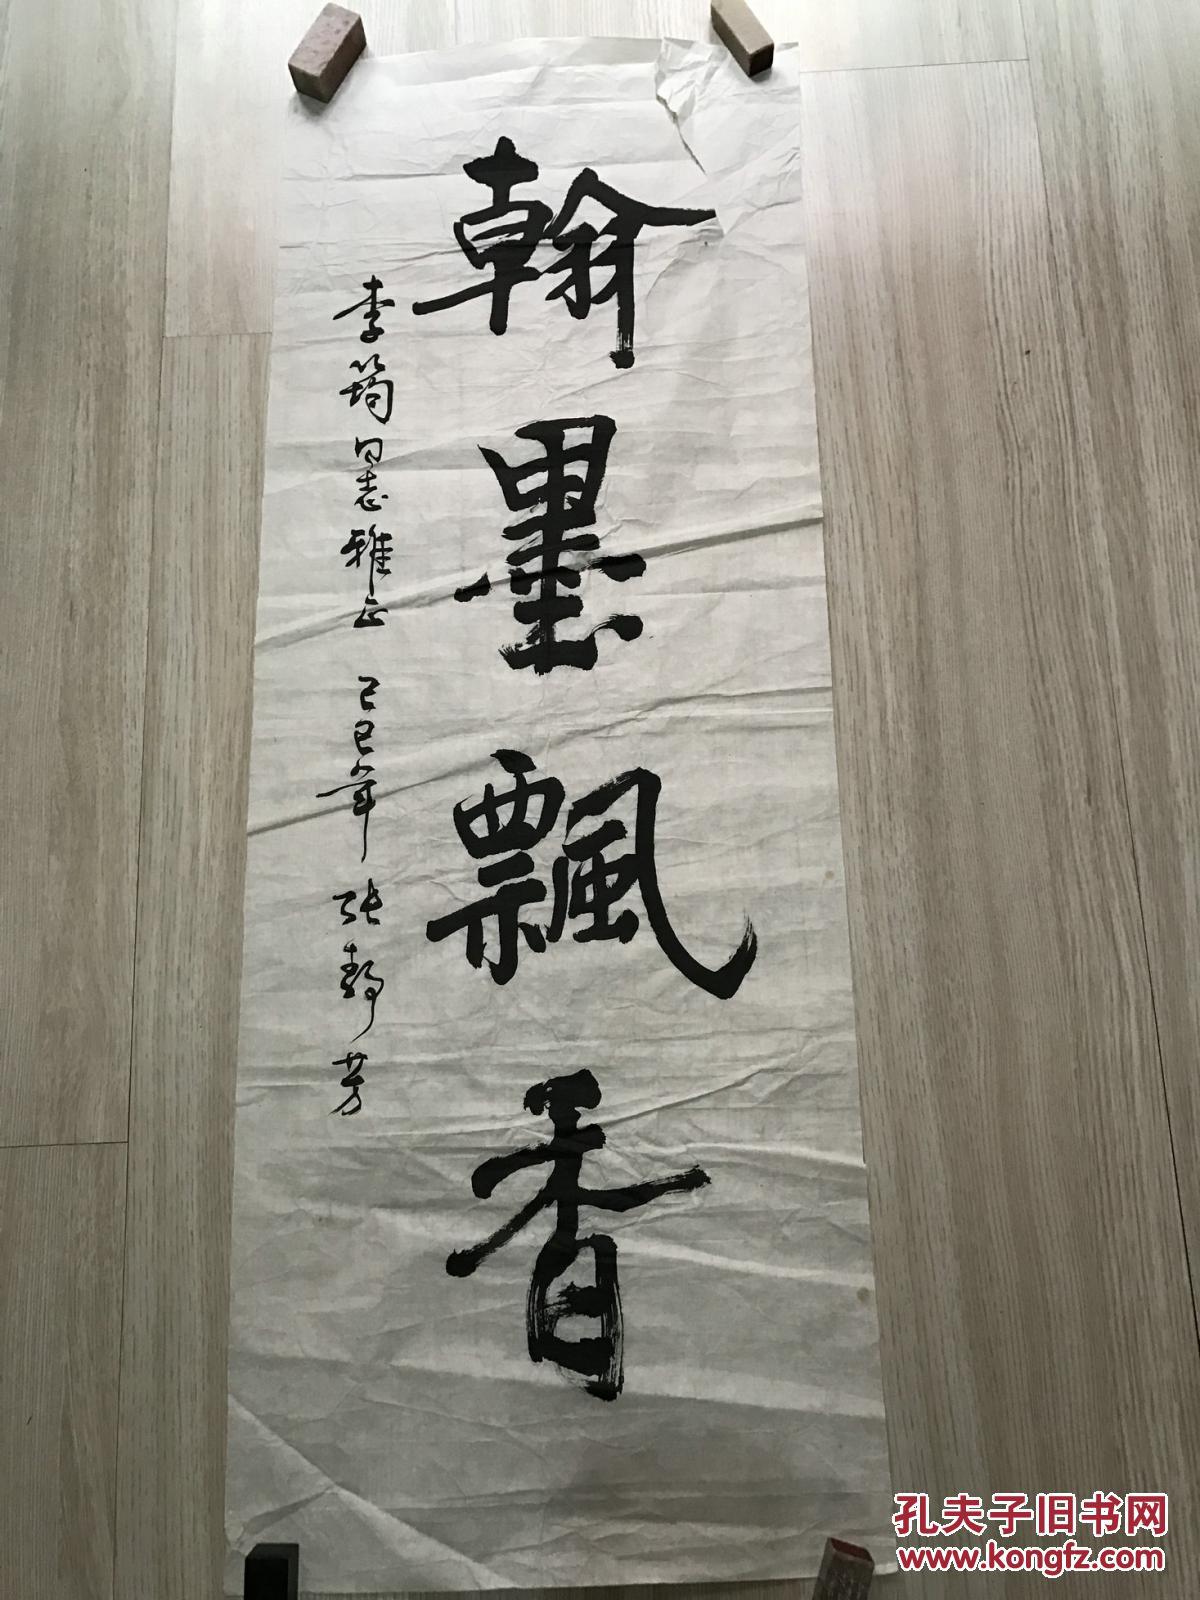 翰墨飄香
李筠同志雅正 己巳年 张静芳
孔夫子旧书网
www.kongfz.com